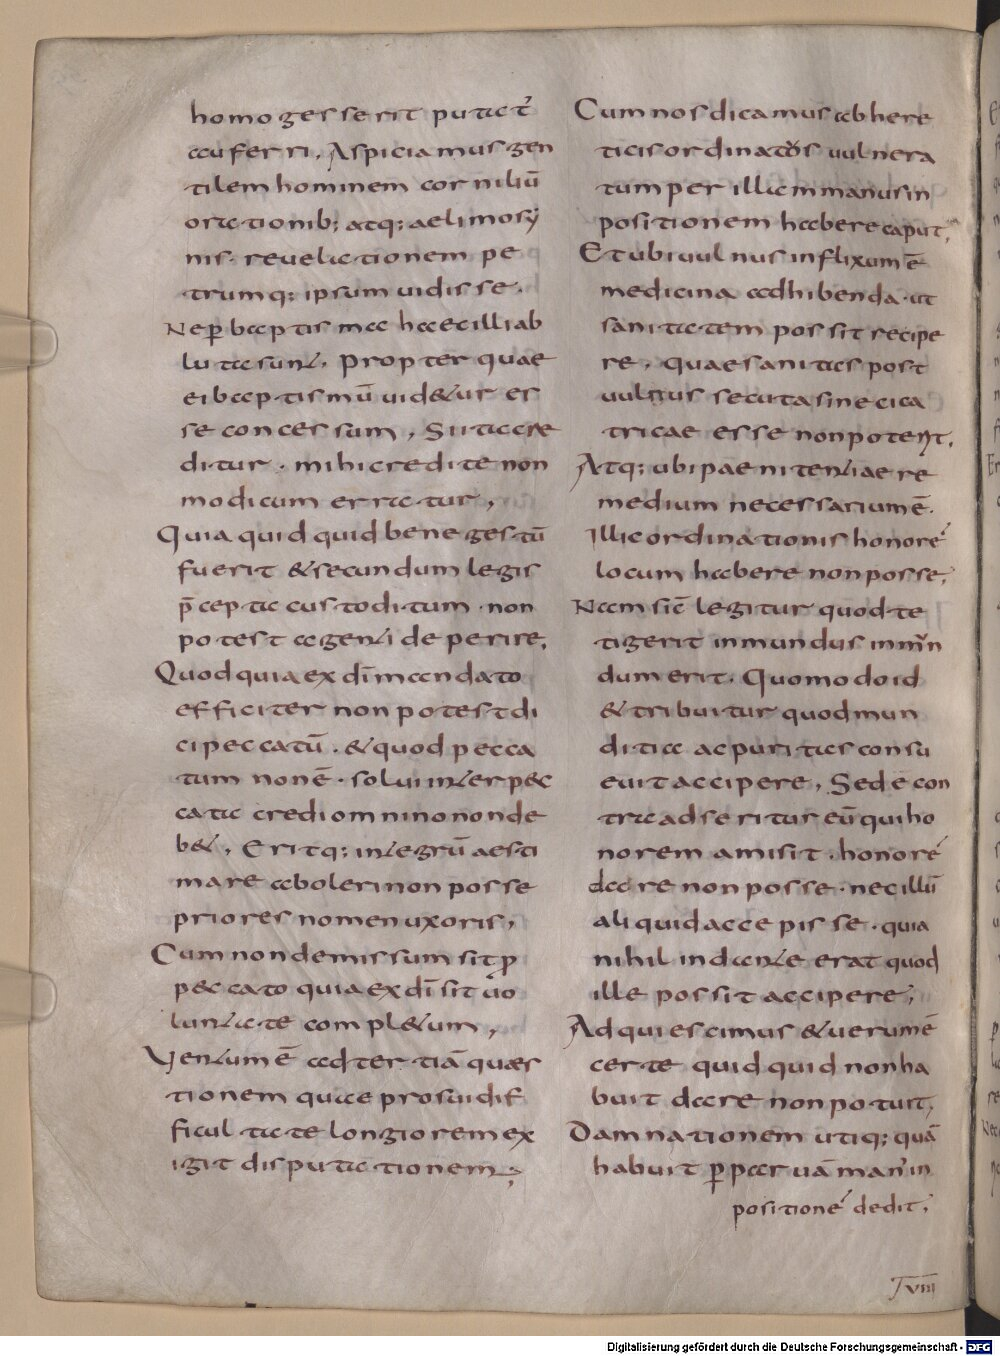 homo gesserit putat̄
auferri. Aspiciamus gen
tilem hominem corniliū
orationib; atq; aelimosy
nis. reuelationem pe
trumq; ipsum uidisse.
Nep̄ baptisma haec illi ab
lata sunt. propter quae
ei baptismū uidetur es
se concessum, Si itacre
ditur. mihi credite non
modicum erratur,
Quia quidquid bene gestū
fuerit & secundum legis
p̄cepta custoditum. non
potest agenti deperire,
Quod quia ex dī mandato
efficiter non potest di
ci peccatū. & quod pecca
tum nonē. solui inter pec
cata credi omnino non de
bet. Eritq; integrū aesti
mare aboleri non posse
priores nomen uxoris,
Cum non demissum sit p̄
peccato quia ex dī sit uo
luntate completum,
Uentum ē ad tertiā quaes
tionem quae pro sui dif
ficultate longiorem ex
igit disputationem;
Cum nos dicamus ab here
ticis ordinatos uulnera
tum per illam manus in
positionem habere caput,
Et ubi uulnus inflixum ē
medicina adhibenda. ut
sanitatem possit recipe
re, quae sanitas post
uulnus secuta sine cica
tricae esse non potent,
Atq; ubi paenitentiae re
medium necessarium ē.
Illic ordinationis honorē
locum habere non posse,
Nam sic̄ legitur quod te
tigerit inmundus inmūn
dum erit. Quomodo id
& tribuitur quod mun
ditia ac puritas consu
euit accipere, Sed e con
tra adseritur eū qui ho
norem amisit. honorē
dare non posse. nec illū
aliquid accepisse. quia
nihil in dante erat quod
ille possit accipere,
Adquiescimus & uerum ē
certe quidquid non ha
buit dare non potuit,
Damnationem utiq; quā
habuit p̄ paruā man' in
positionē dedit,
VIII
Digitalisierung gefördert durch die Deutsche Forschungsgemeinschaft - DFG